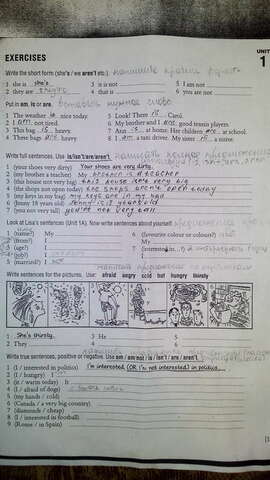 UNIT
EXERCISES 1
Write the short form (she's / we aren't etc.). написать краткую форму
1 she is she's 3 it is not 5 I am not
2 they are they're 4 that is 6 you are not
Put in am, is or are. вставить нужное слово
1 The weather is nice today. 5 Look! There is Carol.
2 I am not tired. 6 My brother and I are good tennis players.
3 This bag is heavy. 7 Ann is at home. Her children are at school.
4 These bags are heavy. 8 I am a taxi driver. My sister is a nurse.
Write full sentences. Use is/isn't/are/aren't. написать полное предложение
1 (your shoes very dirty) Your shoes are very dirty.
2 (my brother a teacher) My brother is a teacher
3 (this house not very big) this house isn't very big
4 (the shops not open today) the shops aren't open today
5 (my keys in my bag) my keys are in my bag
6 (Jenny 18 years old) Jenny is 18 years old
7 (you not very tall) you're not very tall
Look at Lisa's sentences (Unit 1A). Now write sentences about yourself.
1 (name?) My 6 (favourite colour or colours?)
2 (from?) I My
3 (age?) I 7 (interested in...?)
4 (job?) I I
5 (married?) I
Write sentences for the pictures. Use: afraid angry cold hot hungry thirsty
1 She's thirsty. 3 He 5
2 They 4 6
Write true sentences, positive or negative. Use am / am not / is / isn't / are / aren't.
1 (I / interested in politics) I'm interested (OR I'm not interested) in politics.
2 (I / hungry) I
3 (it / warm today) It
4 (I / afraid of dogs)
5 (my hands / cold)
6 (Canada / a very big country)
7 (diamonds / cheap)
8 (I / interested in football)
9 (Rome / in Spain)